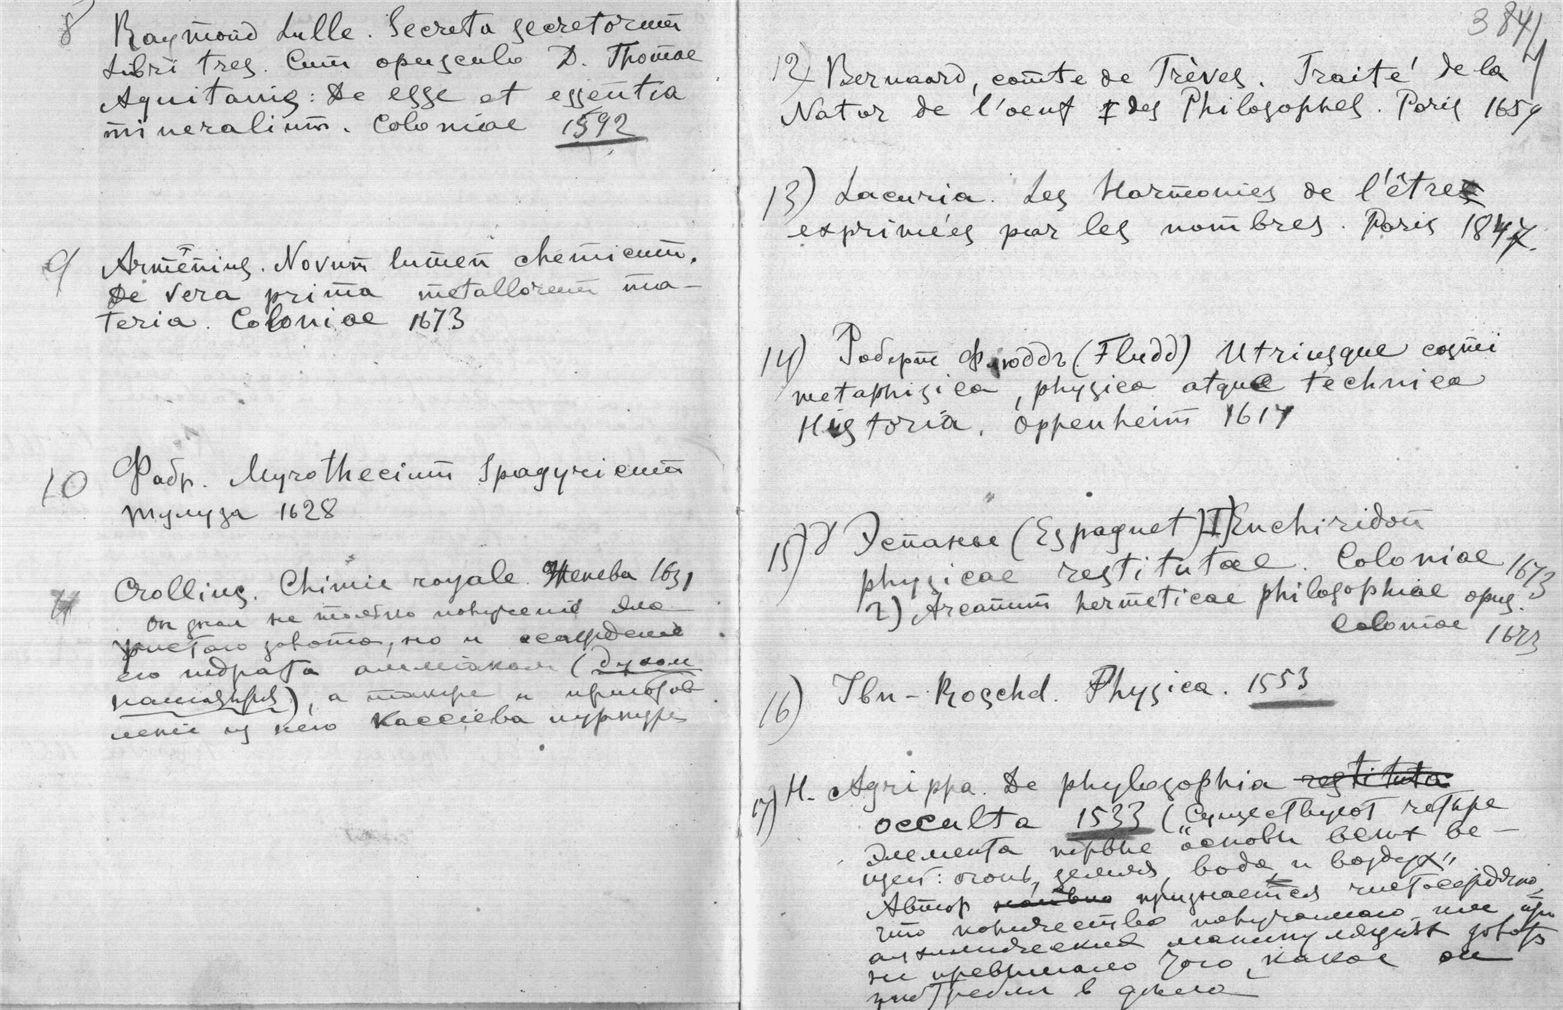 8 Raymond Lulle. Secreta secretorum
Libri tres. Cum opusculo D. Thomae
Aquitanis: De esse et essentia
mineralium. Coloniae 1592
9 Armenius. Novum lumen chemicum.
De vera prima metallorum ma-
teria. Coloniae 1673
10 Фабр. Myrothecium Spagyricum
Тулуза 1628
11 Crollius. Chimie royale. Женева 1631
Он знал не только получение
чистого золота, но и осаждение
его гидрата аммиаком (духом
нашатыря), а также и приготов-
ление из него Кассиева пурпура
384/4
12) Bernaard, comte de Trèves. Traité de la
Natur de l'oeuf des Philosophes. Paris 1659
13) Lacuria. Les Harmonies de l'êtres
exprimées par les nombres. Paris 1847.
14) Роберт Флюддъ (Fludd) Utriusque cosmi
metaphisica, physica atque technica
Historia. Oppenheim 1617
15) д'Эспанье (Espagnet) 1) Enchiridon
physicae restitutae. Coloniae 1673
2) Arcanum hermeticae philosophiae opus.
Coloniae 1673
16) Ibn-Roschd. Physica. 1553
17) H. Agrippa. De phylosophia restituta
occulta 1533 (Существуют четыре
элемента первые "основы всех ве-
щей: огонь, земля, вода и воздух"
Автор наивно признается чистосердечно,
что количество получаемого им при
алхимических манипуляциях золота
не превышало того, какое он
употреблял в дело